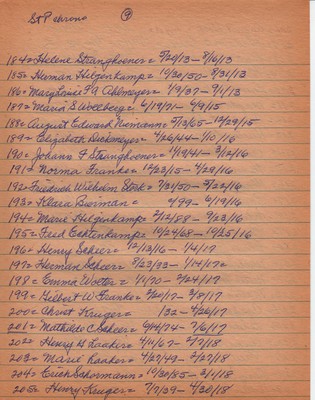 St P chrono ⑨
184= Helene Stranghoener= 5/20/13-8/16/13
185= Herman Helgenkamp= 10/30/50-8/31/13
186= Mary Louise F A Ahlmeyer= 1/9/37-9/1/13
187= Maria S. Wellberg= 4/19/71-6/9/15
188= August Edward Niemann= 5/13/65-12/29/15
189= Elizabeth Dickmeyer= 4/26/44-1/10/16
190= Johann F Stranghoener= 11/19/41-3/12/16
191= Norma Franke= 12/23/15-4/28/16
192= Friedrich Wilhelm Stock= 7/31/50-5/22/16
193= Klara Buvman= 9/79-6/19/16
194= Marie Helgenkamp= 2/12/88-9/23/16
195= Fred Echtenkamp= 10/24/68-10/25/16
196= Henry Scheer= 12/13/16-1/4/17
197= Herman Scheer= 8/23/93-1/14/17=
198= Emma Woetter= 4/1/90-2/24/17
199= Hilbert W Franke= 2/20/17-3/8/17
200= Christ Kruger= 1/32-4/20/17
201= Mathilde C Scheer= 9/14/74-7/6/17
202= Henry H Laaker= 4/11/67-2/7/18
203= Marie Raaker= 4/27/49-2/27/18
204= Erich Schormann= 10/30/85-3/1/18
205= Henry Kruger= 7/7/39-4/30/18